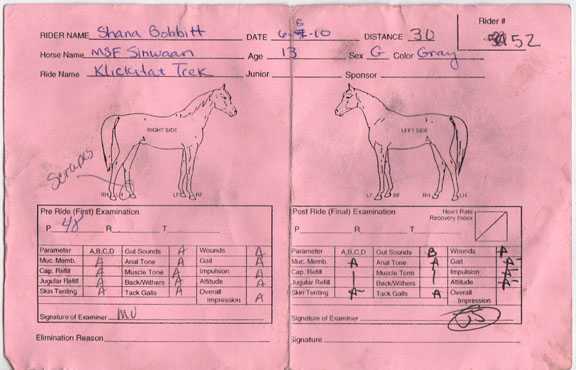 RIDER NAME Shana Bobbitt DATE 6-5-10 DISTANCE 30 Rider # 52
Horse Name MSF Sinwaan Age 13 Sex G Color Gray
Ride Name Klickitat Trek Junior Sponsor
RIGHT SIDE LEFT SIDE
scrapes
RH LH LF RF LF RF RH LH
Pre Ride (First) Examination
P 48 R T
Parameter A,B,C,D Gut Sounds A Wounds A
Muc. Memb. A Anal Tone A Gait A
Cap. Refill A Muscle Tone A Impulsion A
Jugular Refill A Back/Withers A Attitude A
Skin Tenting A Tack Galls A Overall Impression A
Signature of Examiner MV
Post Ride (Final) Examination Heart Rate Recovery Index
P R T
Parameter A,B,C,D Gut Sounds B Wounds A
Muc. Memb. A Anal Tone A Gait A
Cap. Refill Muscle Tone Impulsion A
Jugular Refill Back/Withers Attitude A
Skin Tenting A- Tack Galls A Overall Impression
Signature of Examiner
Elimination Reason Signature